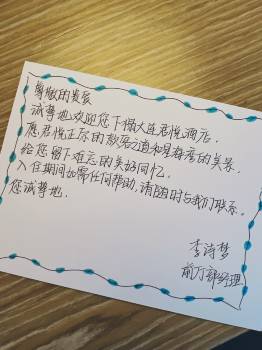 尊敬的贵宾
诚挚地欢迎您下榻大连君悦酒店.
愿君悦正尽的款宾之道和星海湾的美景
给您留下难忘的美好回忆.
入住期间如需任何帮助,请随时与我们联系.
您诚挚地.
李诗梦
前厅部经理